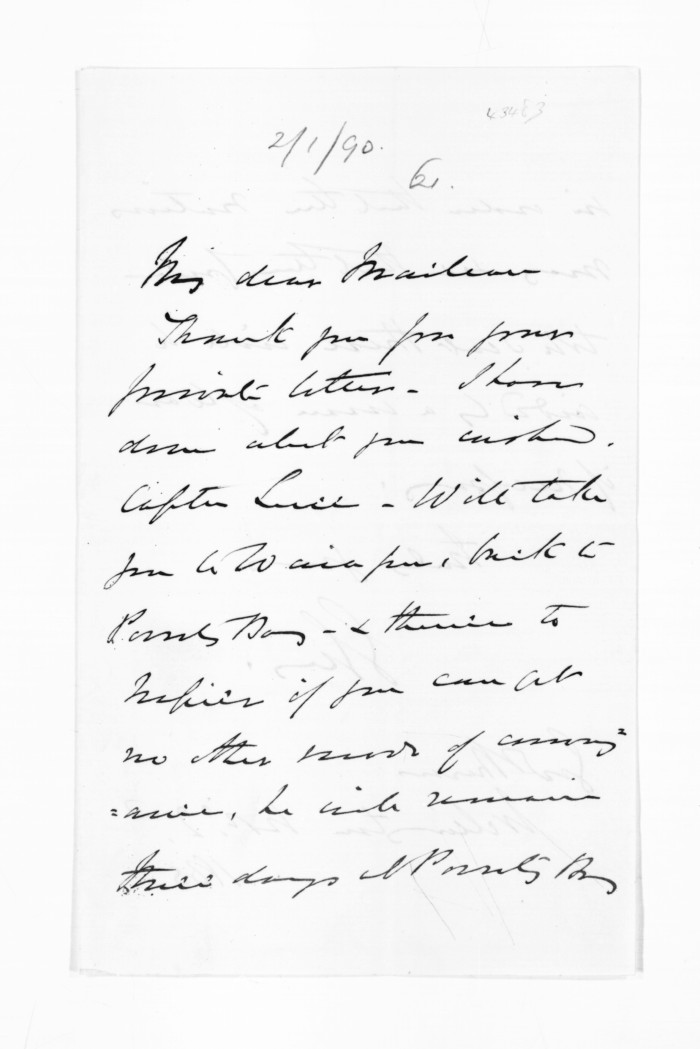 43483
2/1/90.
61.
My dear Maclean
Thank you for your
private letter - I have
done what you wished.
Captn Luce - Will take
you to Waiapu, back to
Poverty Bay - & thence to
Napier if you can get
no other mode of convey=
=ance, he will remain
three days at Poverty Bay